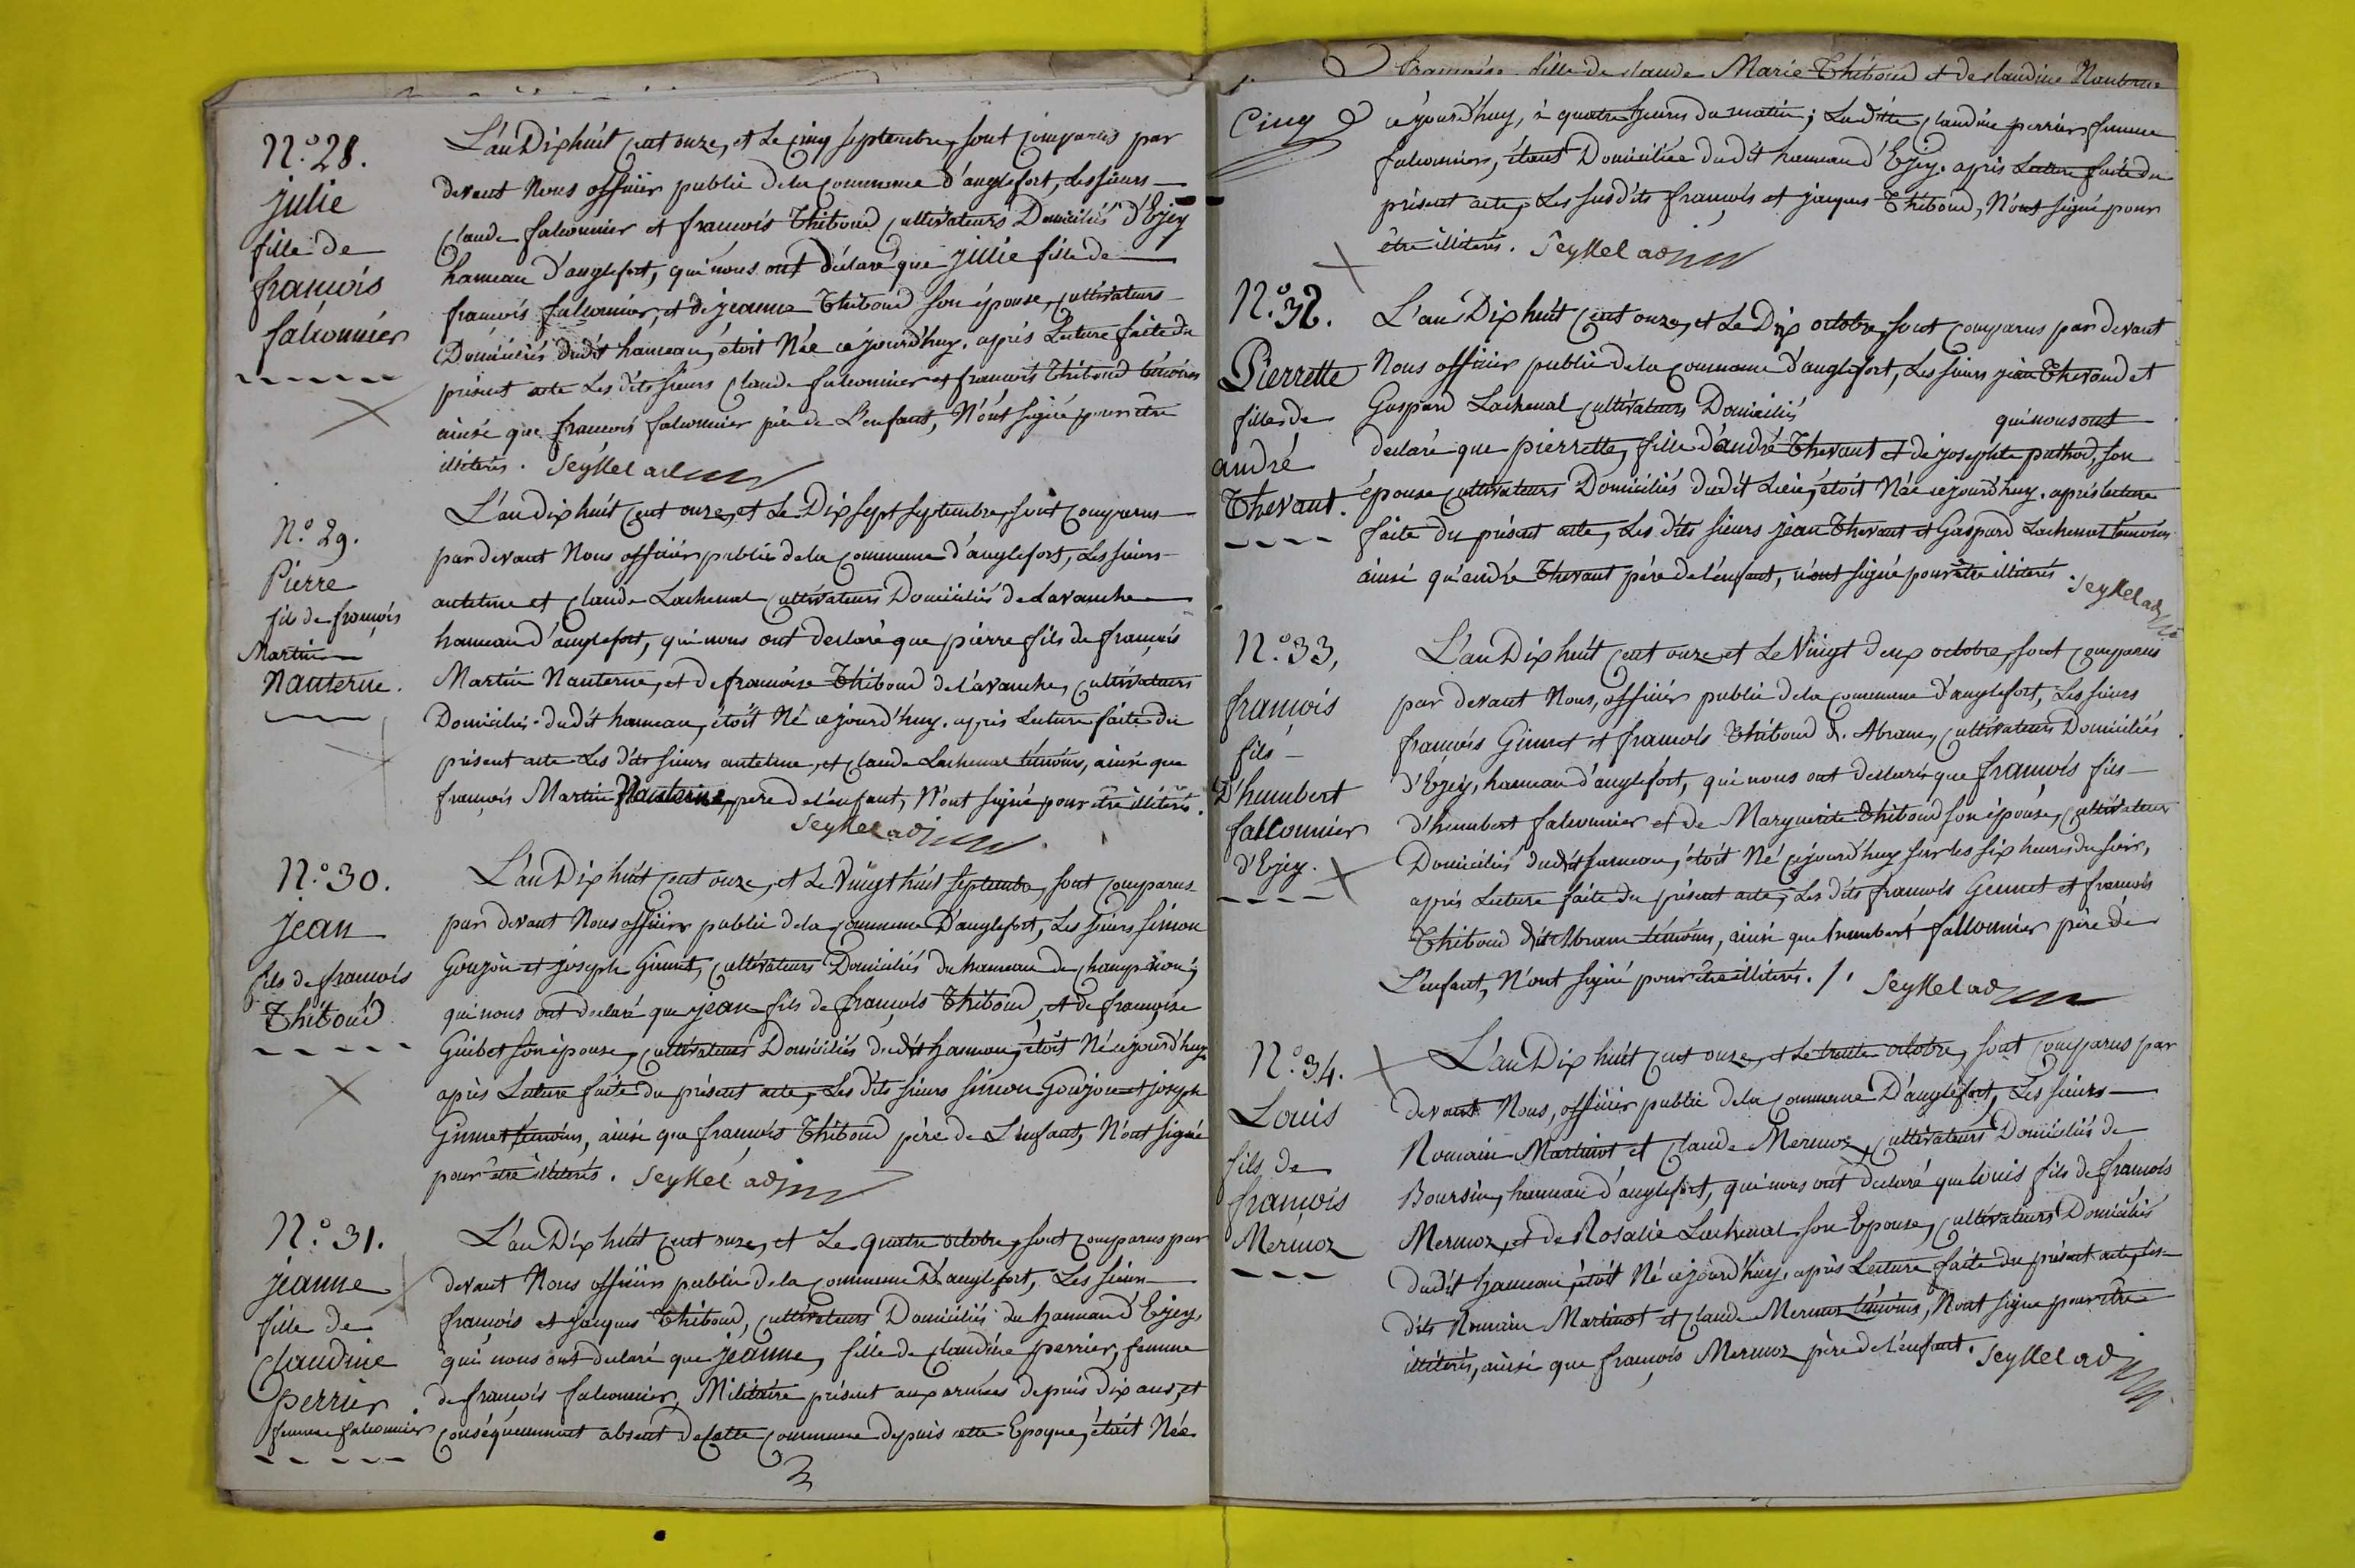 N.° 28.
julie
fille de
françois
falconnier
L'an Dix huit Cent onze, et Le Cinq septembre, sont Comparus par
devant Nous officier public de la Commune d'anglefort, les sieurs
Claude falconnier et françois Thiboud Cultivateurs Domiciliés d'Ejey
hameau d'anglefort, qui nous ont déclaré que julie fille de
françois falconnier, et de jeanne Thiboud son épouse, Cultivateurs
Domiciliés dudit hameau, étoit Née cejourd'huy. après Lecture faite du
présent acte Les dits sieurs Claude falconnier et françois Thiboud témoins
ainsi que françois falconnier père de L'enfant, N'ont signé pour être
illiterés. Seyssel adj
N.° 29.
Pierre
fils de françois
Martin
Nanterne.
L'an Dix huit Cent onze, et Le Dix sept septembre, sont Comparus
par devant Nous officier public de la Commune d'anglefort, Les sieurs
antelme et Claude Lachenal Cultivateurs Domiciliés de Lavanche
hameau d'anglefort, qui nous ont declaré que pierre fils de françois
Martin Nanterne, et de francoise Thiboud de Lavanche, Cultivateurs
Domiciliés dudit hameau, étoit Né cejourd'huy. après Lecture faite du
présent acte Les dits sieurs antelme, et Claude Lachenal témoins, ainsi que
françois Martin Nanterne, père de L'enfant, N'ont signé pour être illiterés.
Seyssel adj
N.° 30.
jean
fils de françois
Thiboud
L'an Dix huit Cent onze, et Le Vingt huit septembre, sont Comparus
par devant Nous officier public de la Commune D'anglefort, Les sieurs simon
Goujon et joseph Ginnet, Cultivateurs Domiciliés du hameau de
qui nous ont declaré que jean fils de françois Thiboud, et de françoise
Guibet son épouse, Cultivateurs Domiciliés dudit hameau, étoit Né cejourd'huy
après Lecture faite du présent acte, Les dits sieurs simon Goujon et joseph
Ginnet témoins, ainsi que françois Thiboud père de L'enfant, N'ont signé
pour être illiterés. Seyssel adj
N.° 31.
jeanne
fille de
Claudine
perrier
femme falconnier
L'an Dix huit Cent onze, et Le quatre octobre, sont Comparus par
devant Nous officier public de la Commune D'anglefort, Les sieurs
françois et jacques Thiboud, Cultivateurs Domiciliés du hameau d'Ejey,
qui nous ont declaré que jeanne, fille de Claudine perrier, femme
de françois falconnier, Militaire présent aux armées depuis dix ans, et
Conséquemment absent de Cette Commune depuis cette Epoque, étoit Née
francoise fille de claude Marie Thiboud et de claudine Nanterne
Cinq
cejourd'huy, à quatre heures du matin; Laditte Claudine perrier femme
falconnier, étant Domiciliée dudit hameau d'Ejey. après Lecture faite du
présent acte, Les susdits françois et jacques Thiboud, N'ont signé pour
être illiterés. Seyssel adj
N.° 32.
Pierrette
fille de
andré
Thevant.
L'an Dix huit Cent onze, et Le Dix octobre, sont Comparus par devant
Nous officier public de la Commune d'anglefort, Les sieurs jean Thevand et
Gaspard Lachenal Cultivateurs Domiciliés qui nous ont
declaré que pierrette, fille d'andré Thevant et de josephte puthod, son
épouse Cultivateurs Domiciliés dudit Lieu, étoit Née cejourd'huy. après lecture
faite du présent acte, Les dits sieurs jean Thevant et Gaspard Lachenal témoins
ainsi qu'andré Thevant père de l'enfant, n'ont signé pour être illiterés
Seyssel adj
N.° 33,
francois
fils
D'humbert
falconnier
d'Ejey.
L'an Dix huit Cent onze et Le Vingt deux octobre, sont Comparus
par devant Nous, officier public de la Commune d'anglefort, Les sieurs
françois Ginnet et francois Thiboud d. Abram, Cultivateurs Domiciliés
d'Ejey, hameau d'anglefort, qui nous ont declaré que francois fils
d'humbert falconnier et de Marguerite Thiboud son épouse, Cultivateurs
Domiciliés dudit hameau, étoit Né cejourd'huy sur les six heures du soir,
après Lecture faite du présent acte, Les dits francois Ginnet et francois
Thiboud dit Abram témoins, ainsi que humbert falconnier père de
L'enfant, N'ont signé pour être illiterés. /. Seyssel adj
N.° 34.
Louis
fils de
françois
Mermoz
L'an Dix huit Cent onze, et Le trente octobre, sont Comparus par
devant Nous, officier public de la Commune D'anglefort, Les sieurs
Romain Martinot et Claude Mermoz, Cultivateurs Domiciliés de
Boursin, hameau d'anglefort, qui nous ont declaré que Louis fils de francois
Mermoz, et de Rosalie Lachenal son Epouse, Cultivateurs Domiciliés
dudit hameau, étoit Né cejourd'huy, après Lecture faite du présent acte, les
dits Romain Martinot et Claude Mermoz témoins, N'ont signé pour être
illiterés, ainsi que françois Mermoz père de L'enfant. Seyssel adj